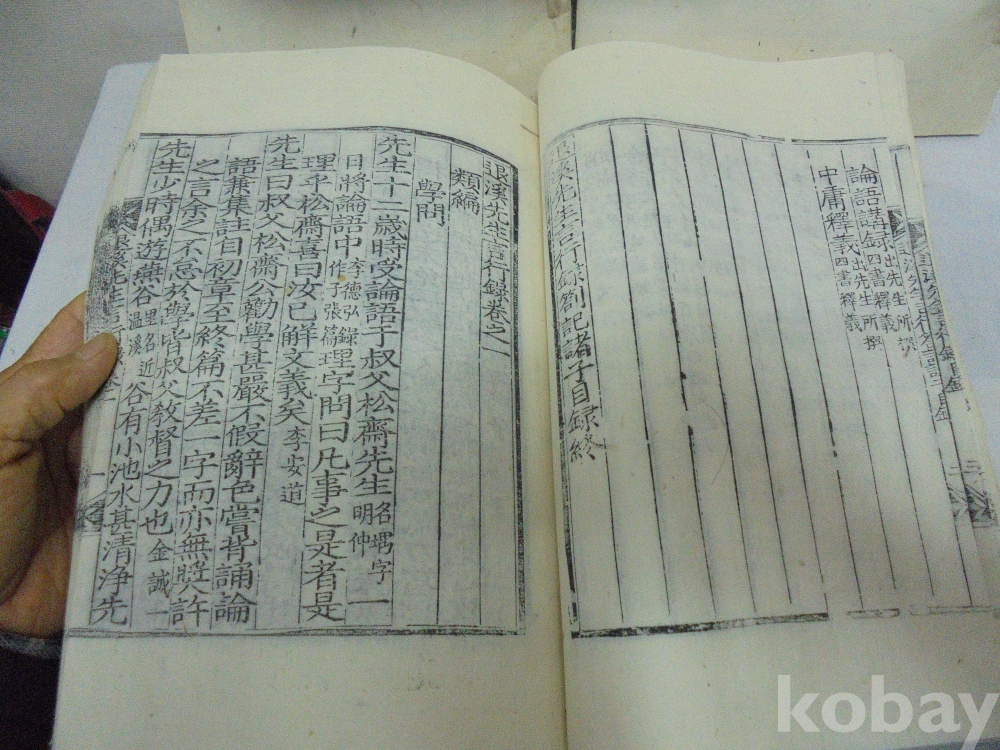 論語講録出先生所撰四書釋義
中庸釋義出先生所撰四書釋義
退溪先生言行録劄記諸子目録終
退溪先生言行録卷之一
類編
學問
先生十二歲時受論語于叔父松齋先生名堣字明仲一
日將論語中李德弘録作子張篇理字問曰凡事之是者是
理乎松齋喜曰汝已解文義矣李安道
先生曰叔父松齋公勸學甚嚴不假辭色嘗背誦論
語兼集註自初章至終篇不差一字而亦無奬許
之言余之不怠於學皆叔父教督之力也金誠一
先生少時偶遊燕谷里名近溫溪谷有小池水甚清淨先
kobay